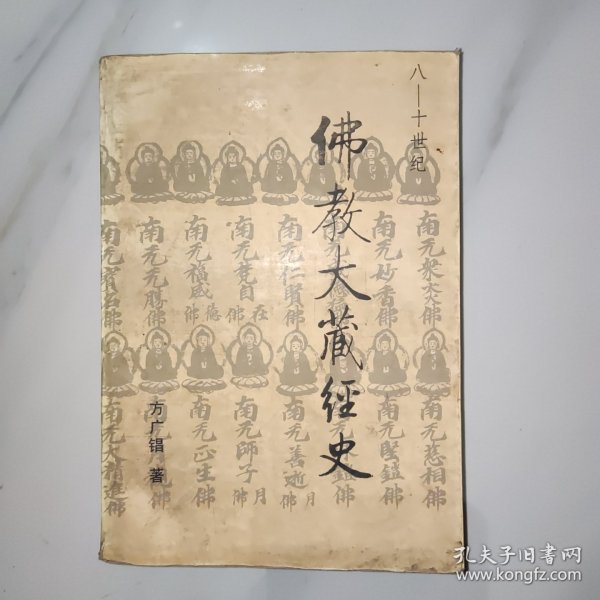 八—十世纪
佛教大藏經史
方广锠 著
南无眾大焱佛
南无妙香佛
南无仁賢佛
南无福威德佛
南无无勝佛
南无寶名佛
南无慈相佛
南无堅鎧佛
南无善逝月佛
南无師子月佛
南无正生佛
南无大精進佛
孔夫子旧书网
www.kongfz.com